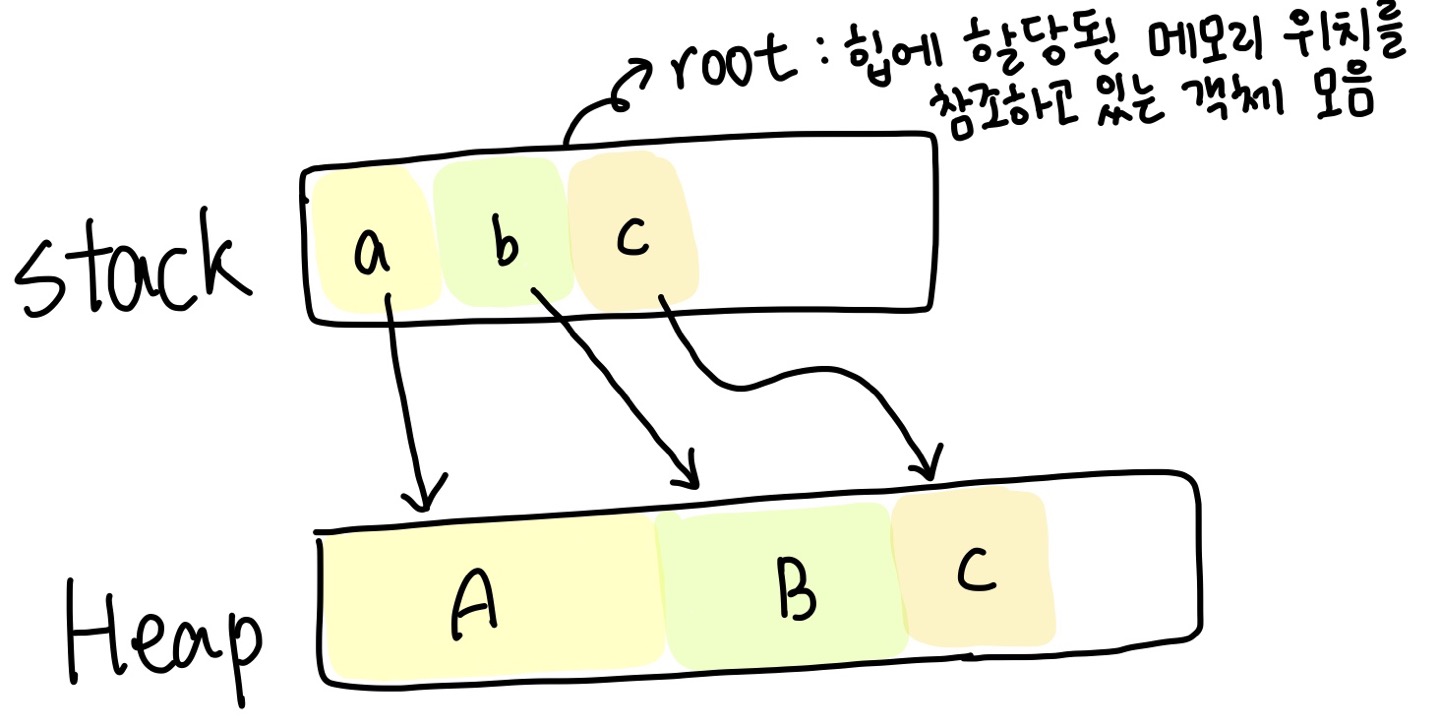 root : 힙에 할당된 메모리 위치를
참조하고 있는 객체 모음
stack
a b c
Heap
A B C